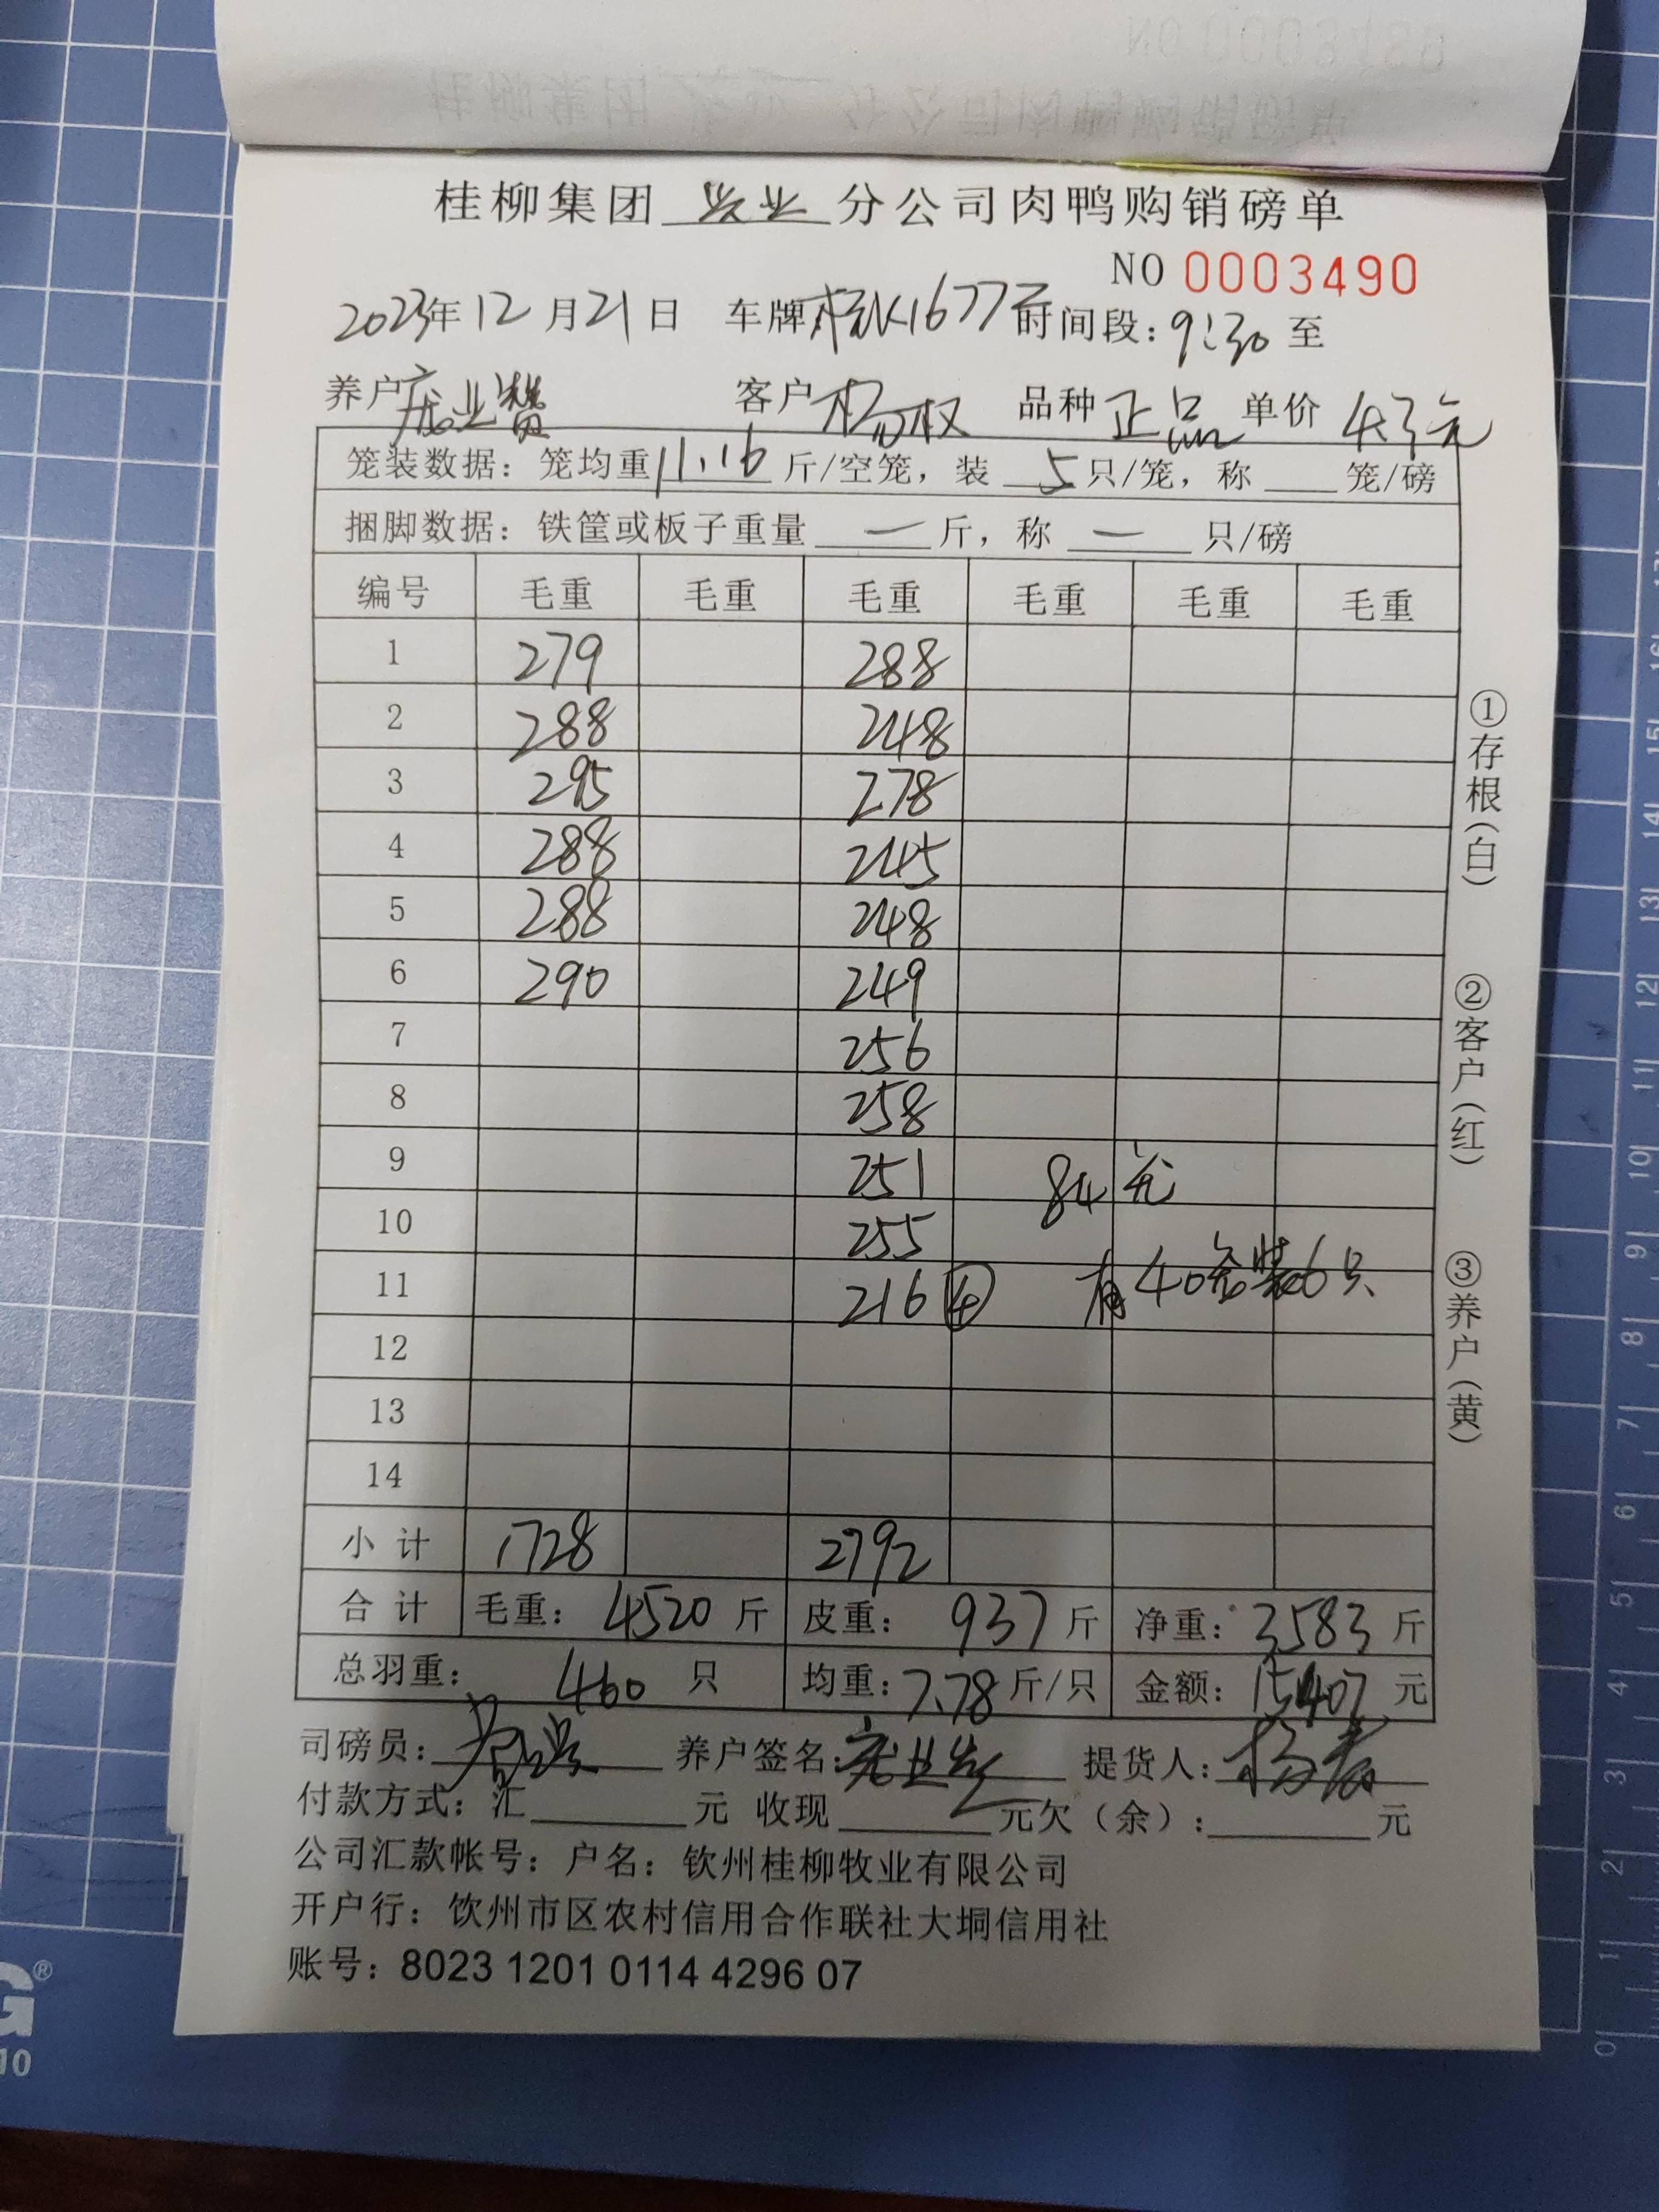 桂柳集团 兴业 分公司肉鸭购销磅单
NO 0003490
2023年12月21日 车牌桂K1677 时间段：9:30 至
养户 庞业赞 客户 杨权 品种 正品 单价 4.3元
笼装数据：笼均重11.16斤/空笼，装 5 只/笼，称 笼/磅
捆脚数据：铁筐或板子重量 — 斤，称 — 只/磅
编号 毛重 毛重 毛重 毛重 毛重 毛重
1 279 288
2 288 248
3 295 278
4 288 245
5 288 248
6 290 249
7 256
8 258
9 251 84笼
10 255
11 216 ④ 有40笼装6只
12
13
14
小计 1728 2792
合计 毛重：4520斤 皮重：937斤 净重：3583斤
总羽重：460只 均重：7.78斤/只 金额：15407元
司磅员： 养户签名： 提货人：
付款方式：汇 元 收现 元欠（余）： 元
公司汇款帐号：户名：钦州桂柳牧业有限公司
开户行：饮州市区农村信用合作联社大垌信用社
账号：8023 1201 0114 4296 07
①存根（白）
②客户（红）
③养户（黄）
17
16
15
14
13
12
11
10
9
8
7
6
5
4
3
2
1
0
G®
10